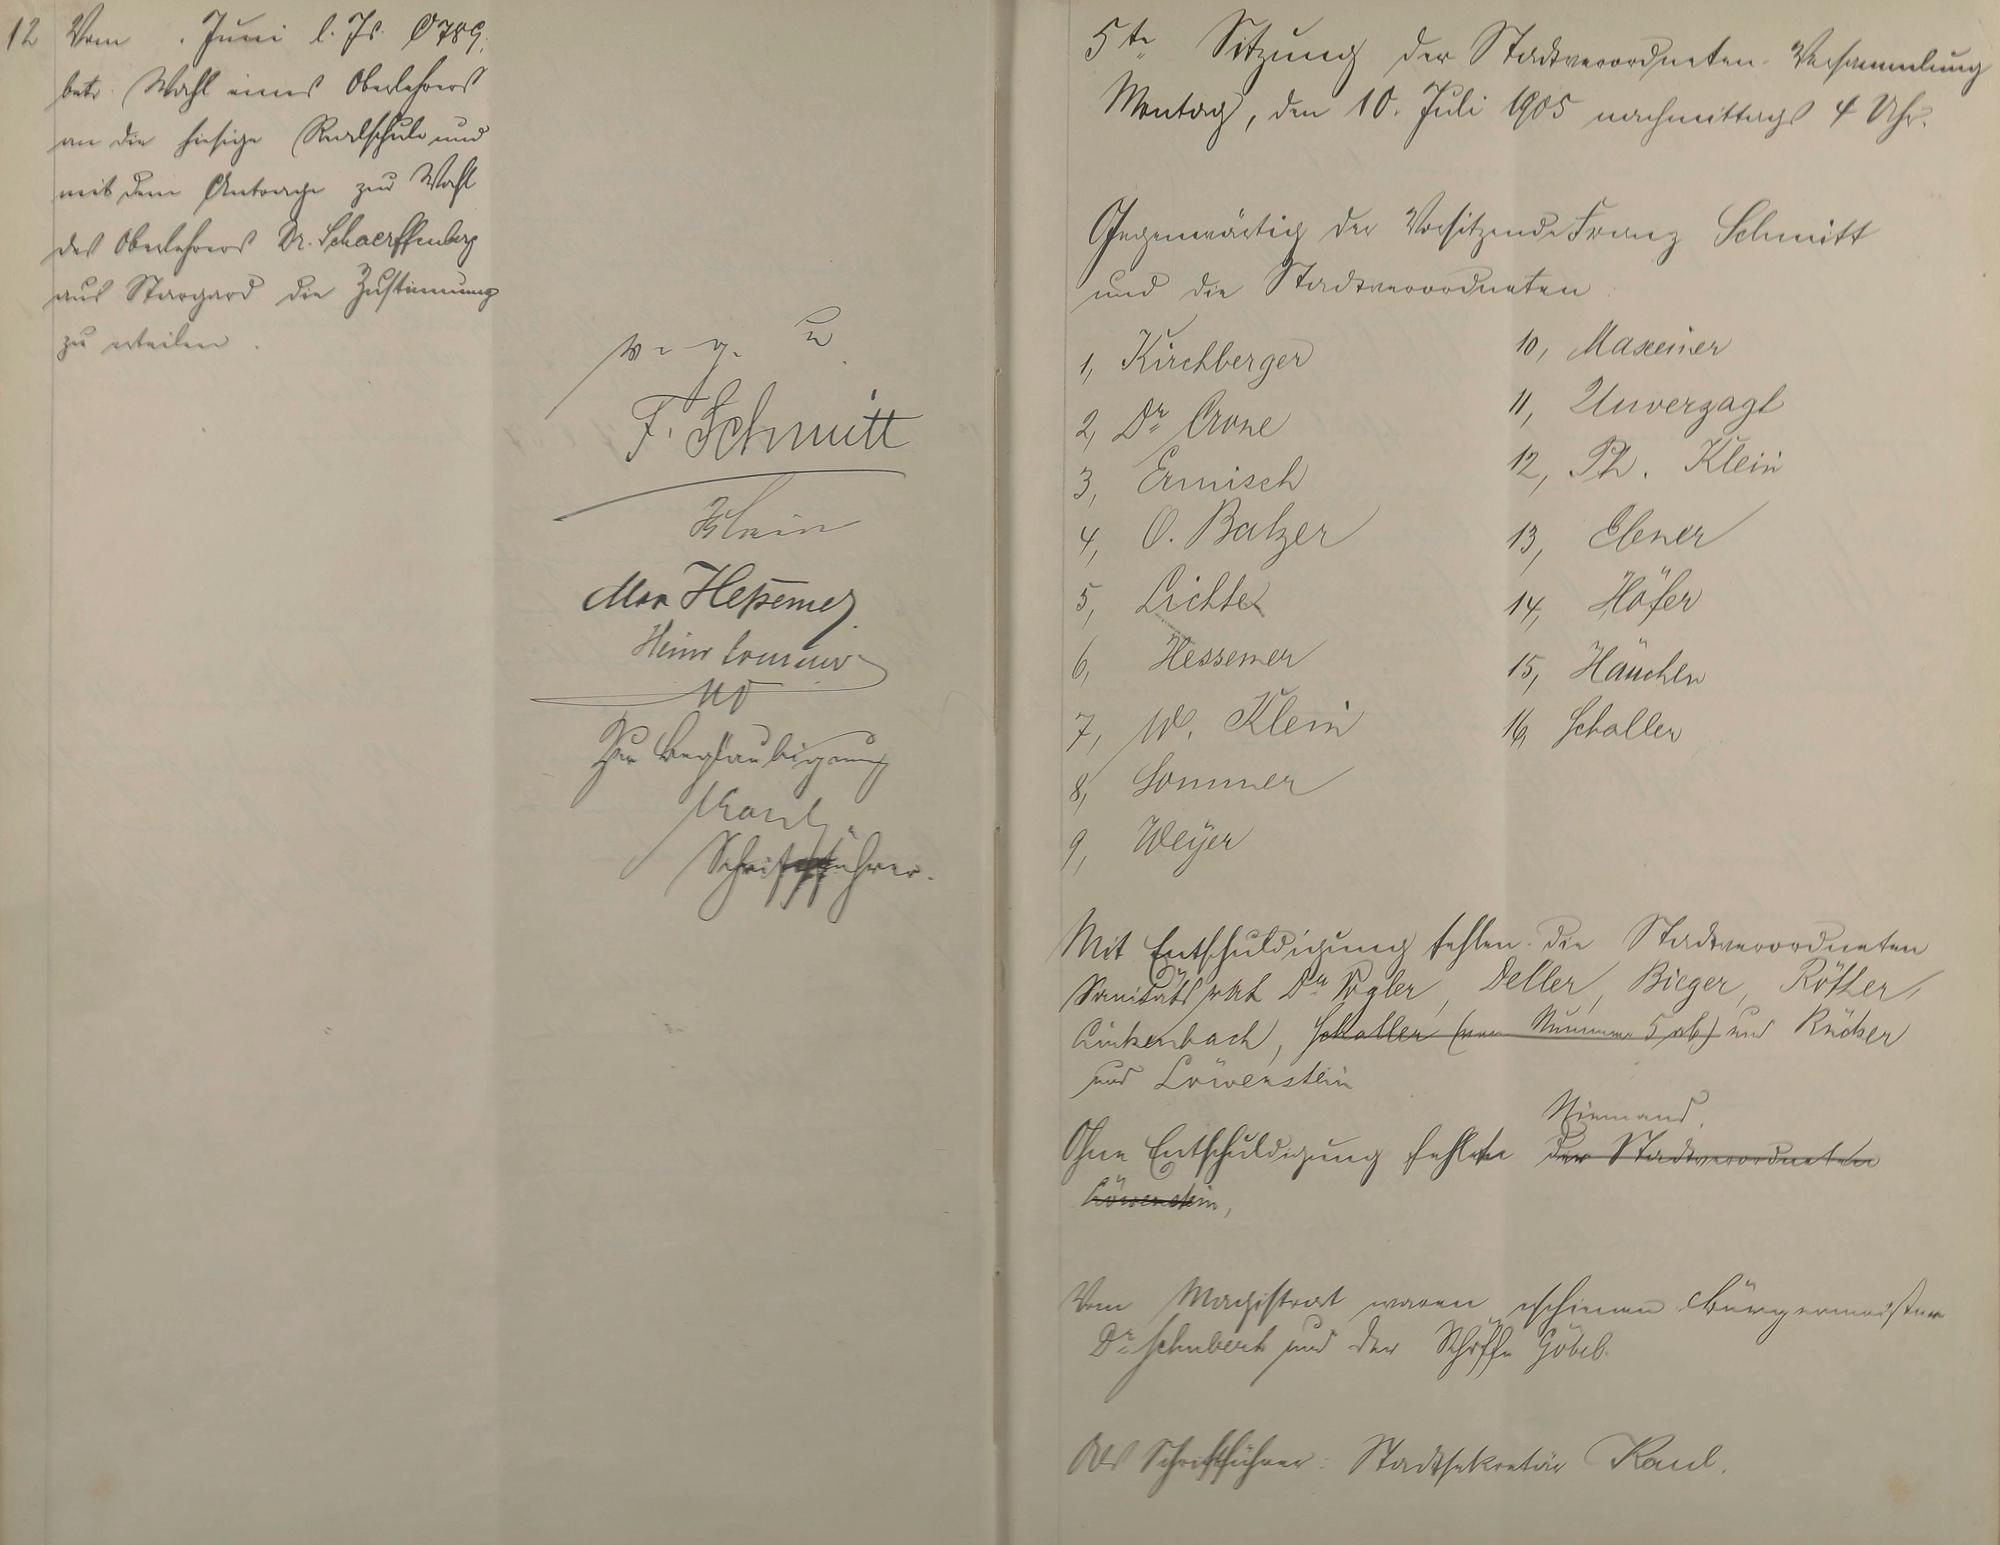 12 Vom . Juni l. Js. O 789,
betr. Wahl eines Oberlehrers
an die hiesige Realschule und
mit dem Antrage zur Wahl
des Oberlehrers Dr. Schaerffenberg
aus Stargard die Zustimmung
zu erteilen.
v. g. u.
F. Schmitt
Klein
Max Heßemer
Heinr Sommer
Zur Beglaubigung
Kaul,
Schriftführer.
5te Sitzung der Stadtverordneten-Versammlung
Montag, den 10. Juli 1905 nachmittags 4 Uhr.
Gegenwärtig der Vorsitzende Franz Schmitt
und die Stadtverordneten
1, Kirchberger
2, Dr Crone
3, Ermisch
4, O. Balzer
5, Lichte
6, Hessemer
7, W. Klein
8, Sommer
9, Weyer
10, Maxeiner
11, Unverzagt
12, Ph. Klein
13, Ebner
14, Höfer
15, Häuchen
16, Schaller
Mit Entschuldigung fehlen die Stadtverordneten
Sanitätsrat Dr Vogler, Deller, Bieger, Röther,
Linkenbach, Schaller (von Nummer 5 ab) und Rücker
und Löwenstein
Niemand.
Ohne Entschuldigung fehlte der Stadtverordneten
Löwenstein,
Vom Magistrat waren erschienen Bürgermeister
Dr Schubert und der Schöffe Göbel.
Als Schriftführer: Stadtsekretär Kaul.